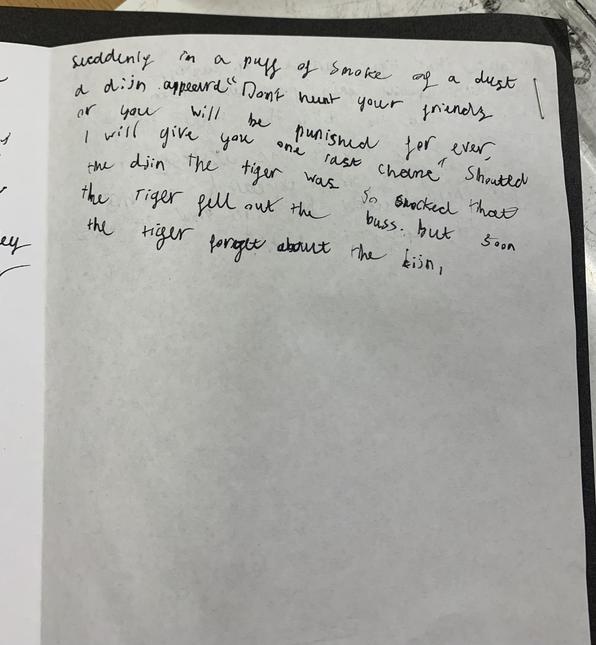 suddenly in a puff of smoke of a dust
a dijn appeard "Don't hunt your friends
or you will be punished for ever,
I will give you one last chane" shouted
the djin the tiger was so shocked that
the Tiger fell out the buss. but soon
the tiger forgot about the
ey